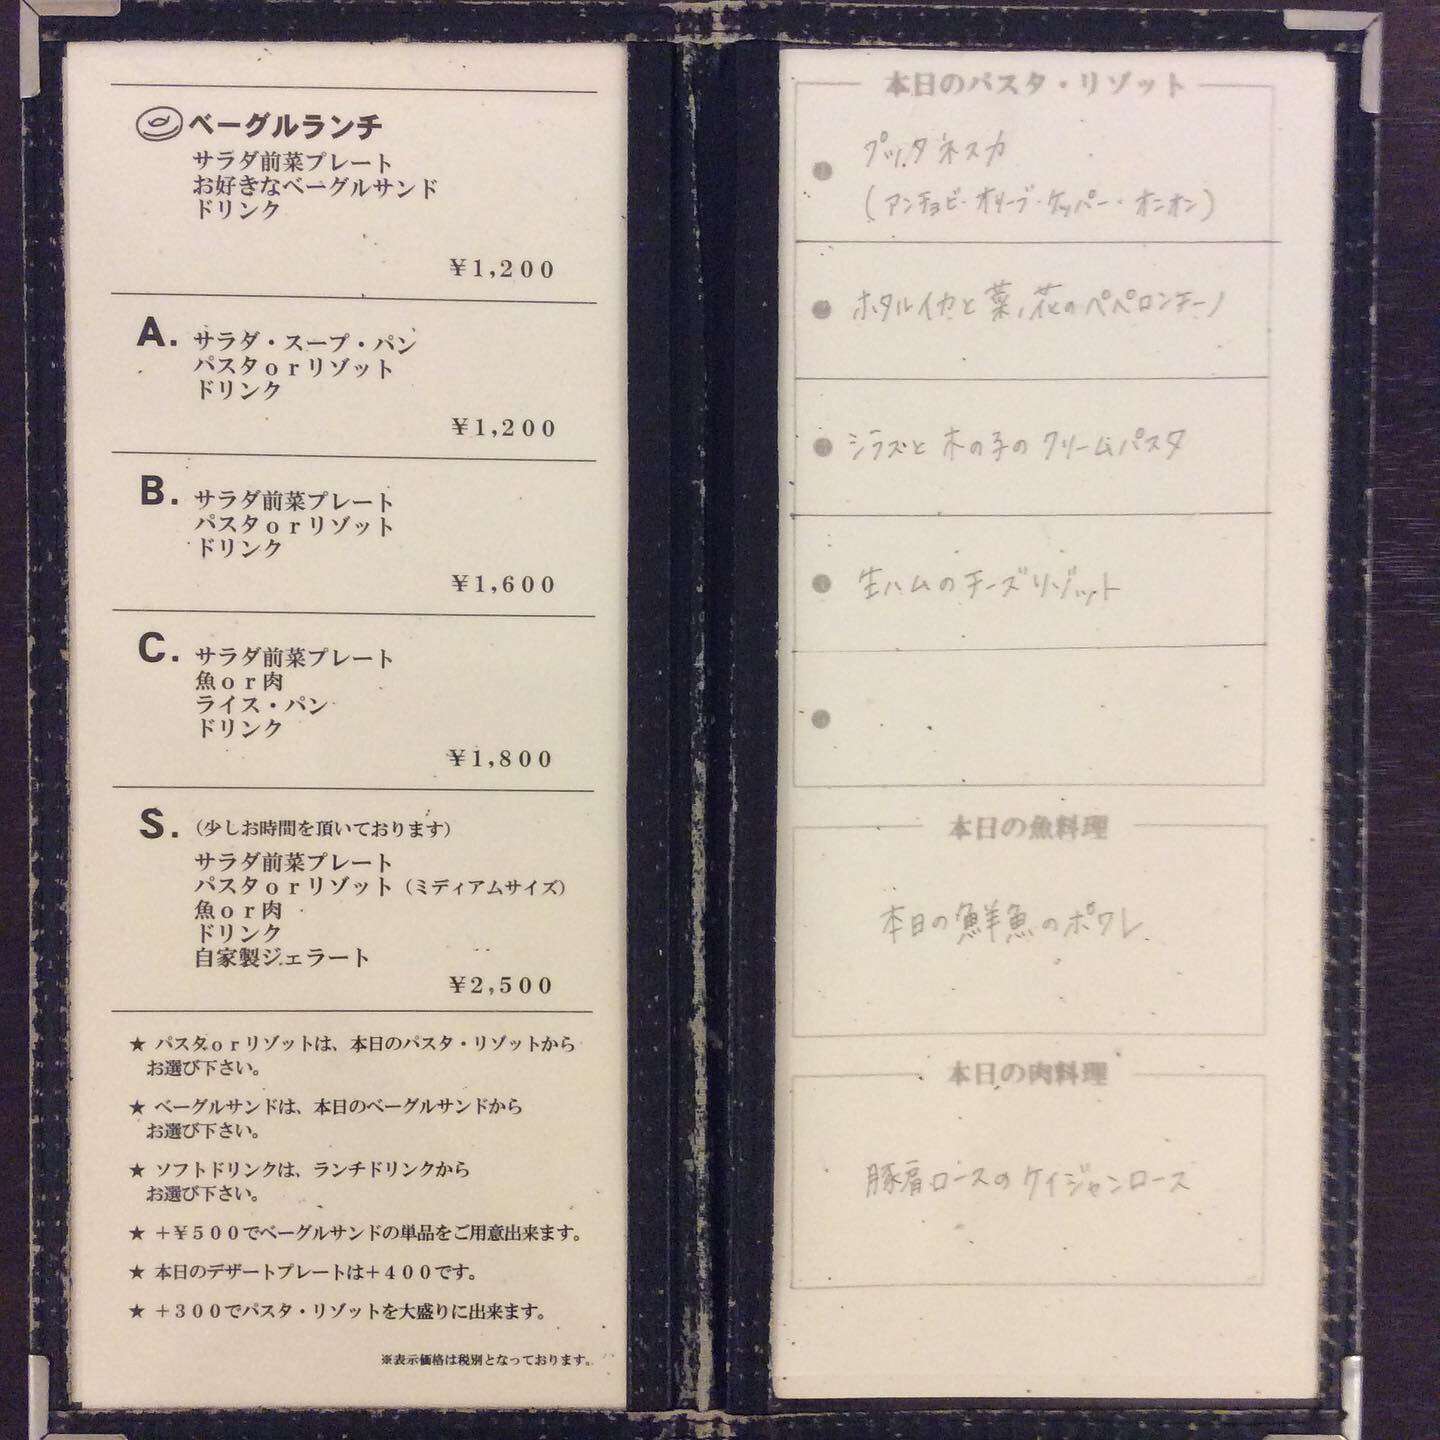 ベーグルランチ
サラダ前菜プレート
お好きなベーグルサンド
ドリンク
￥1,200
A. サラダ・スープ・パン
パスタorリゾット
ドリンク
￥1,200
B. サラダ前菜プレート
パスタorリゾット
ドリンク
￥1,600
C. サラダ前菜プレート
魚or肉
ライス・パン
ドリンク
￥1,800
S. （少しお時間を頂いております）
サラダ前菜プレート
パスタorリゾット（ミディアムサイズ）
魚or肉
ドリンク
自家製ジェラート
￥2,500
★ パスタorリゾットは、本日のパスタ・リゾットから
お選び下さい。
★ ベーグルサンドは、本日のベーグルサンドから
お選び下さい。
★ ソフトドリンクは、ランチドリンクから
お選び下さい。
★ ＋￥500でベーグルサンドの単品をご用意出来ます。
★ 本日のデザートプレートは＋400です。
★ ＋300でパスタ・リゾットを大盛りに出来ます。
※表示価格は税別となっております。
本日のパスタ・リゾット
● プッタネスカ
（アンチョビ・オリーブ・ケッパー・オニオン）
● ホタルイカと菜ノ花のペペロンチーノ
● シラスと木の子のクリームパスタ
● 生ハムのチーズリゾット
●
本日の魚料理
本日の鮮魚のポワレ
本日の肉料理
豚肩ロースのケイジャンロース